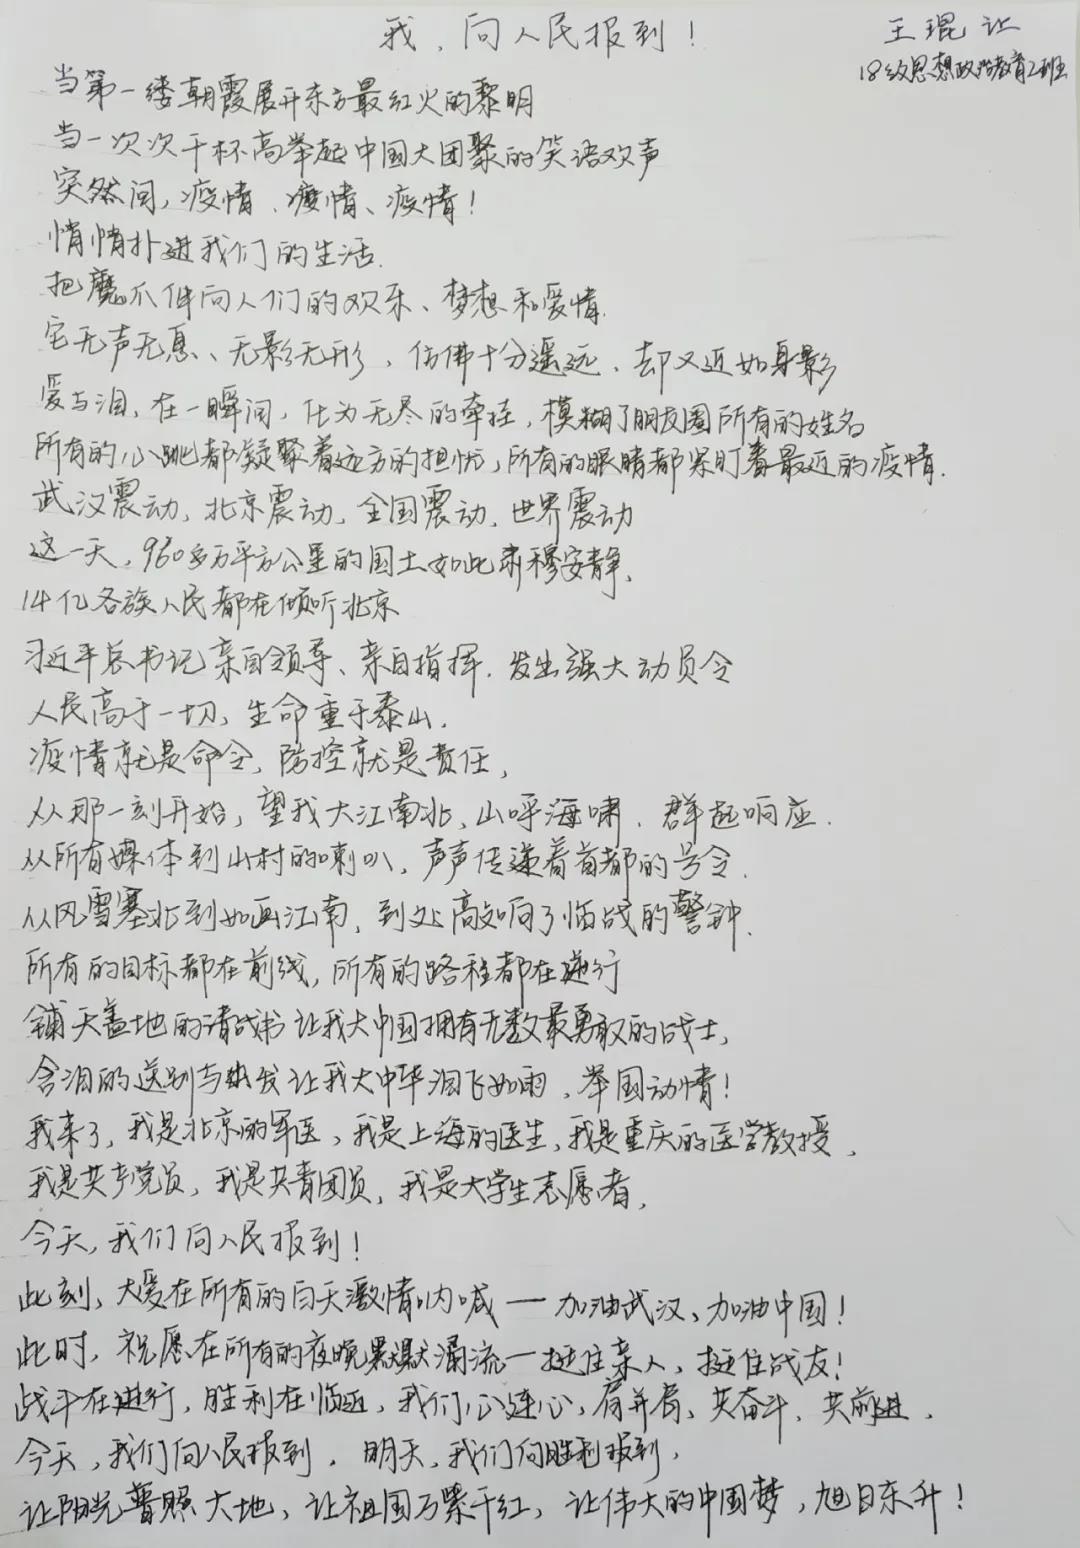 我，向人民报到！
王琨让
18级思想政治教育2班
当第一缕朝霞展开东方最红火的黎明
当一次次干杯高举起中国大团聚的笑语欢声
突然间，疫情、疫情、疫情！
悄悄扑进我们的生活.
把魔爪伸向人们的欢乐、梦想和爱情.
它无声无息、无影无形，仿佛十分遥远、却又近如身影
爱与泪，在一瞬间，化为无尽的牵挂，模糊了朋友圈所有的姓名
所有的心跳都凝聚着远方的担忧，所有的眼睛都紧盯着最近的疫情.
武汉震动，北京震动，全国震动，世界震动
这一天，960多万平方公里的国土如此肃穆安静、
14亿各族人民都在倾听北京
习近平总书记亲自领导、亲自指挥.发出强大动员令
人民高于一切，生命重于泰山.
疫情就是命令，防控就是责任，
从那一刻开始，望我大江南北，山呼海啸.群起响应.
从所有媒体到山村的喇叭，声声传递着首都的号令.
从风雪塞北到如画江南，到处高如响了临战的警钟.
所有的目标都在前线，所有的路程都在逆行
铺天盖地的请战书让我大中国拥有无数最勇敢的战士，
含泪的送别与出发让我大中华泪飞如雨，举国动情！
我来了，我是北京的军医，我是上海的医生，我是重庆的医学教授，
我是共产党员，我是共青团员，我是大学生志愿者，
今天，我们向人民报到！
此刻，大爱在所有的白天激情呐喊——加油武汉、加油中国！
此时，祝愿在所有的夜晚默默涌流—挺住亲人，挺住战友！
战斗在进行，胜利在临近，我们心连心，肩并肩，共奋斗，共前进，
今天，我们向人民报到. 明天，我们向胜利报到，
让阳光普照大地，让祖国万紫千红，让伟大的中国梦，旭日东升！